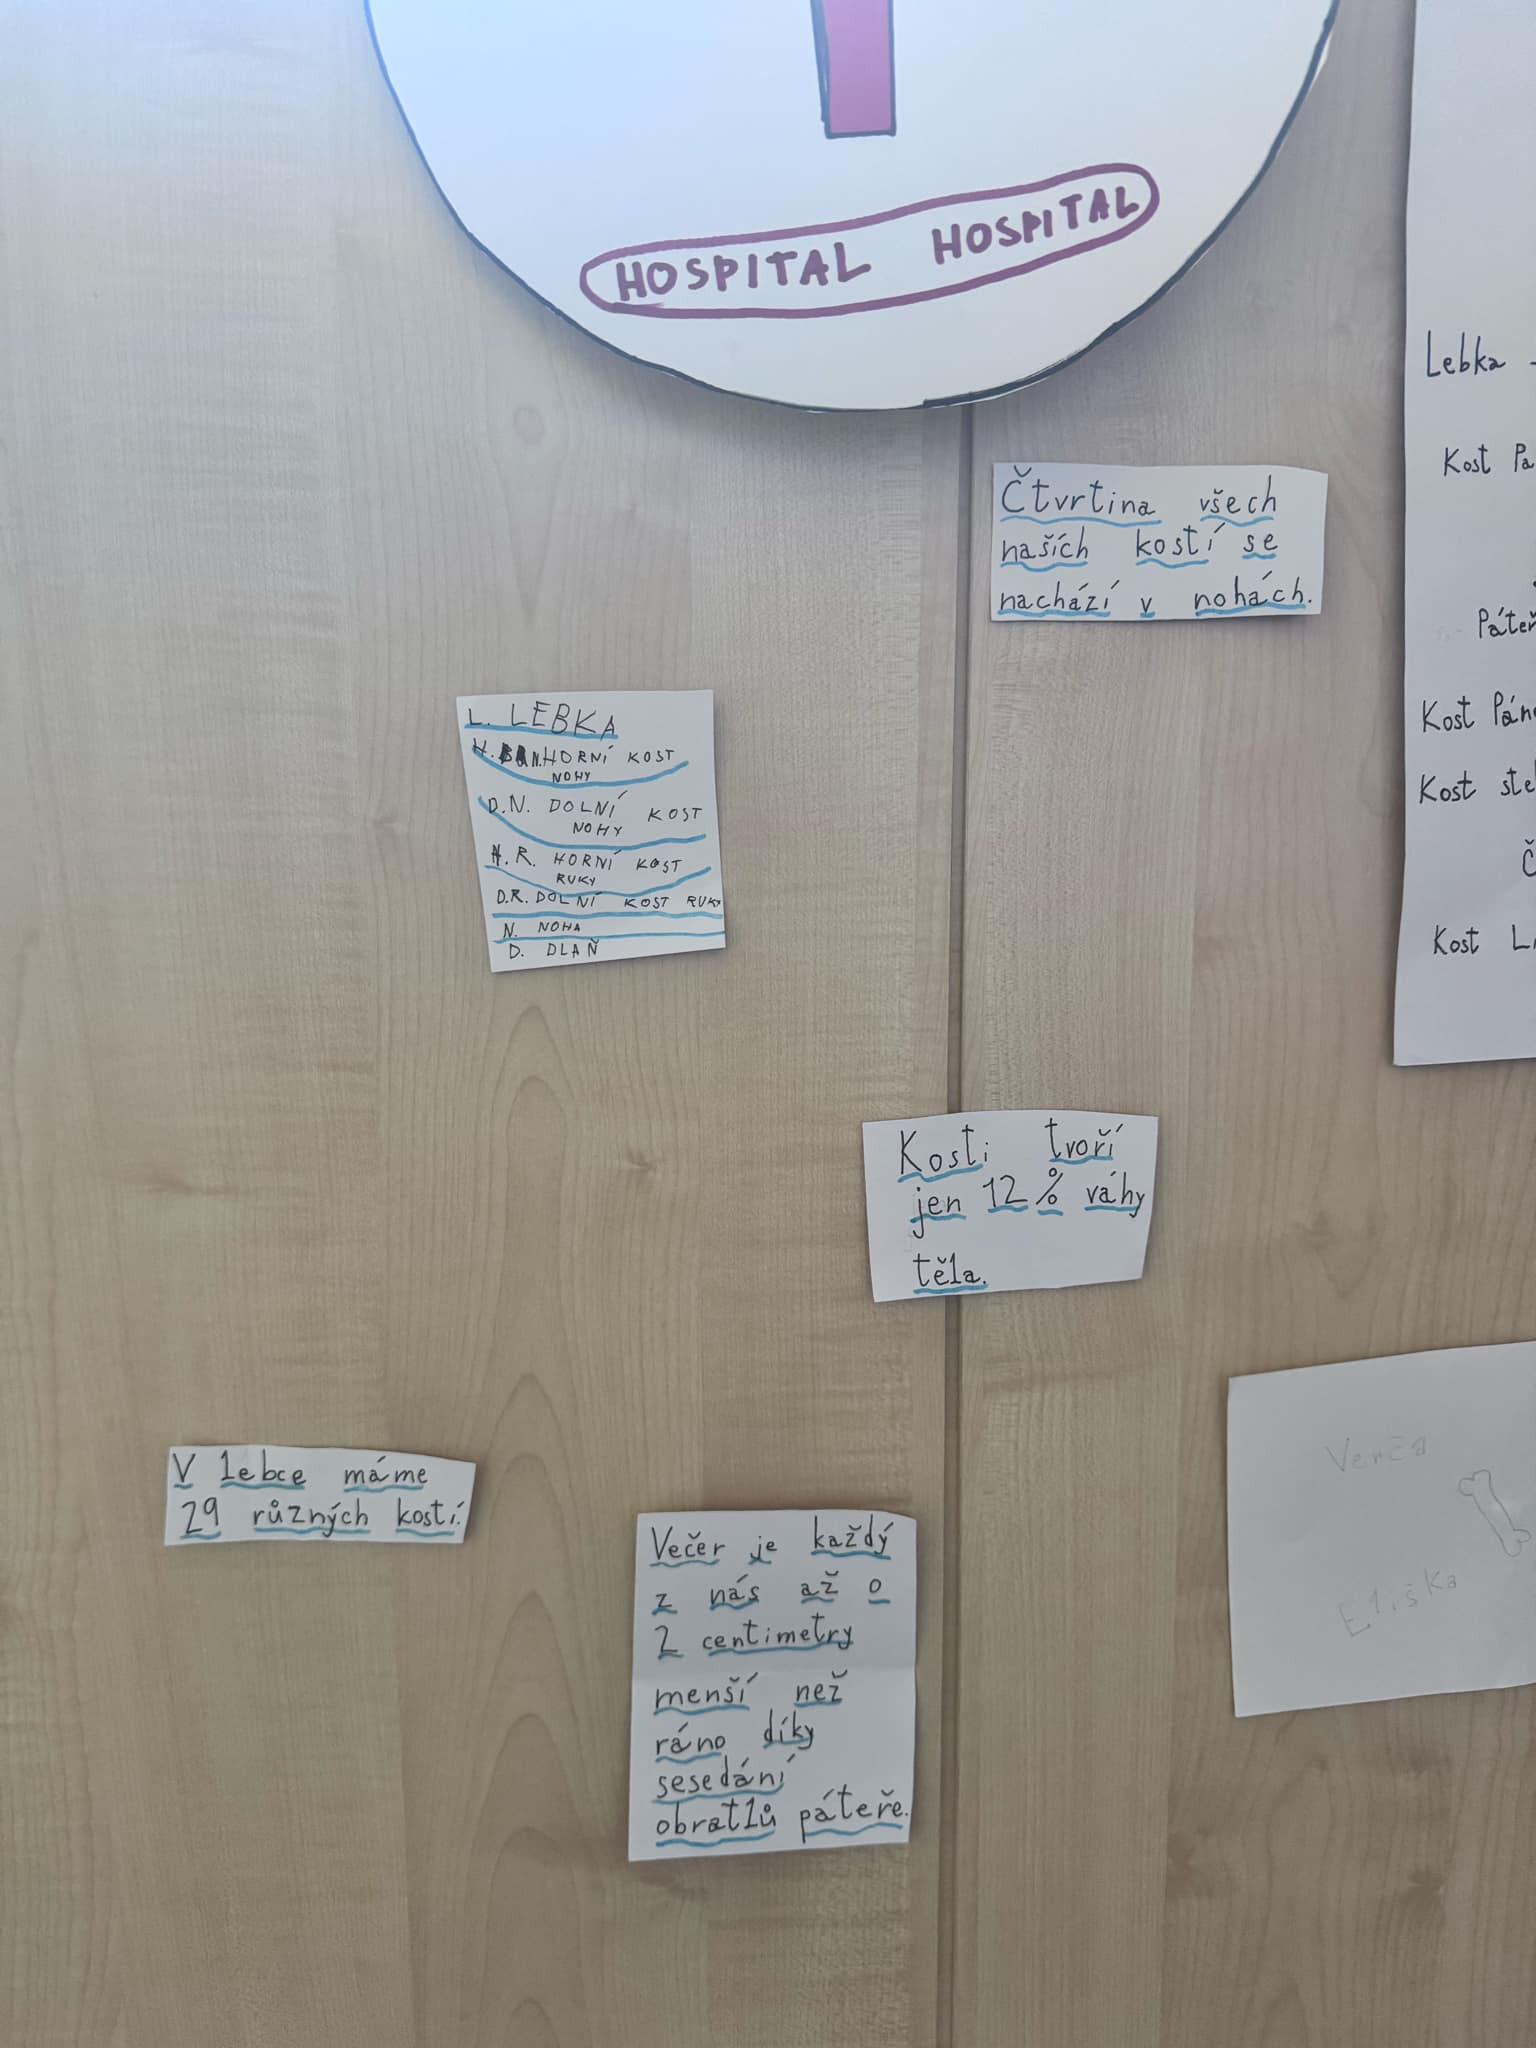 HOSPITAL HOSPITAL
Čtvrtina všech
našich kostí se
nachází v nohách.
L. LEBKA
H. N. HORNÍ KOST
NOHY
D.N. DOLNÍ KOST
NOHY
H.R. HORNÍ KOST
RUKY
D.R. DOLNÍ KOST RUKY
N. NOHA
D. DLAŇ
Lebka -
Kost Pa
Páteř
Kost Pán
Kost ste
Č
Kost L
Kosti tvoří
jen 12% váhy
těla.
V lebce máme
29 různých kostí.
Večer je každý
z nás až o
2 centimetry
menší než
ráno díky
sesedání
obratlů páteře.
Verča
Eliška